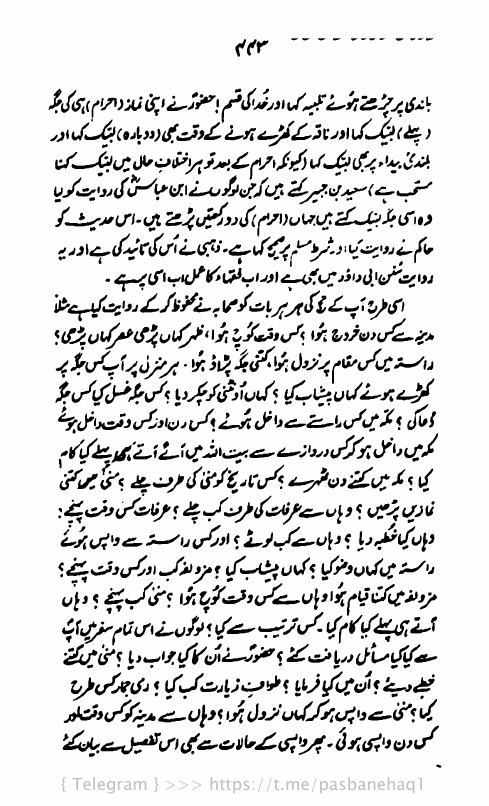 ۴۴۳
بلندی پر چڑھتے ہوئے تلبیہ کہا اور خدا کی قسم! حضورؐ نے اپنی نماز (احرام) ہی کی جگہ
(پہلے) لبیک کہا اور ناقہ کے کھڑے ہونے کے وقت بھی (دوبارہ) لبیک کہا اور
بلندئ بیداء پر بھی لبیک کہا (کیونکہ احرام کے بعد تو ہر اختلاف حال میں لبیک کہنا
مستحب ہے) سعید بن جبیر کہتے ہیں کہ جن لوگوں نے ابن عباسؓ کی روایت کو لیا
وہ اسی جگہ لبیک کہتے ہیں جہاں (احرام) کی دو رکعتیں پڑھتے ہیں۔ اس حدیث کو
حاکم نے روایت کیا، اور شرط مسلم پر صحیح کہا ہے۔ ذہبی نے اس کی تائید کی ہے اور یہ
روایت سُنن ابی داؤد میں بھی ہے اور اب فقہاء کا عمل اب اسی پر ہے۔
اسی طرح آپ کے حج کی ہر ہر بات کو صحابہ نے محفوظ کر کے روایت کیا ہے مثلاً
مدینہ سے کس دن خروج ہُوا؟ کس وقت کوچ ہُوا، ظہر کہاں پڑھی عصر کہاں پڑھی؟
راستہ میں کس مقام پر نزول ہُوا، کتنی جگہ پڑاؤ ہُوا۔ ہر منزل پر آپ کس جگہ پر
کھڑے ہوئے کہاں پیشاب کیا؟ کہاں اُونٹنی کو چکر دیا؟ کس جگہ غسل کیا کس جگہ
دُعا کی؟ مکہ میں کس راستے سے داخل ہُوئے؟ کس دن اور کس وقت داخل ہوئے
مکہ میں داخل ہو کر کس دروازے سے بیت اللہ میں آئے آتے ہی پہلے کیا کام
کیا؟ مکہ میں کتنے دن ٹھہرے؟ کس تاریخ کو منیٰ کی طرف چلے؟ منیٰ میں کتنی
نمازیں پڑھیں؟ وہاں سے عرفات کی طرف کب چلے؟ عرفات کس وقت پہنچے؟
وہاں کیا خُطبہ دیا؟ وہاں سے کب لوٹے؟ اور کس راستہ سے واپس ہُوئے
راستہ میں کہاں وضو کیا؟ کہاں پیشاب کیا؟ مزدلفہ کب اور کس وقت پہنچے؟
مزدلفہ میں کتنا قیام ہُوا وہاں سے کس وقت کُوچ ہُوا؟ منیٰ کب پہنچے؟ وہاں
آتے ہی پہلے کیا کام کیا۔ کس ترتیب سے کیا؟ لوگوں نے اس تمام سفر میں آپؐ
سے کیا کیا مسائل دریافت کئے؟ حضورؐ نے اُن کا کیا جواب دیا؟ منیٰ میں کتنے
خطبے دیئے؟ اُن میں کیا فرمایا؟ طوافِ زیارت کب کیا؟ رمی جمار کس طرح
کیا؟ منیٰ سے واپس ہو کر کہاں نزول ہُوا؟ وہاں سے مدینہ کو کس وقت اور
کس دن واپسی ہوئی۔ پھر واپسی کے حالات سے بھی اس تفصیل سے بیان کئے
{ Telegram } >>> https://t.me/pasbanehaq1